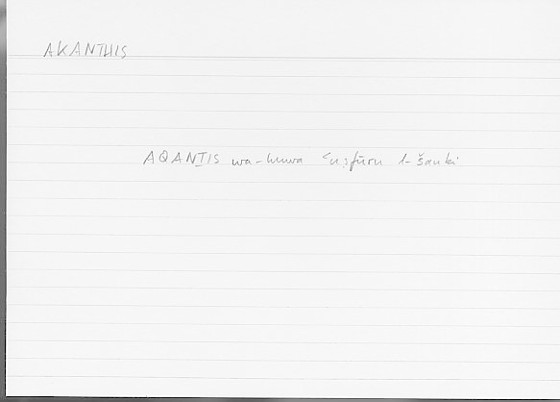 AKANTHIS
AQANṬIS wa-huwa ʿuṣfūru l-šauki